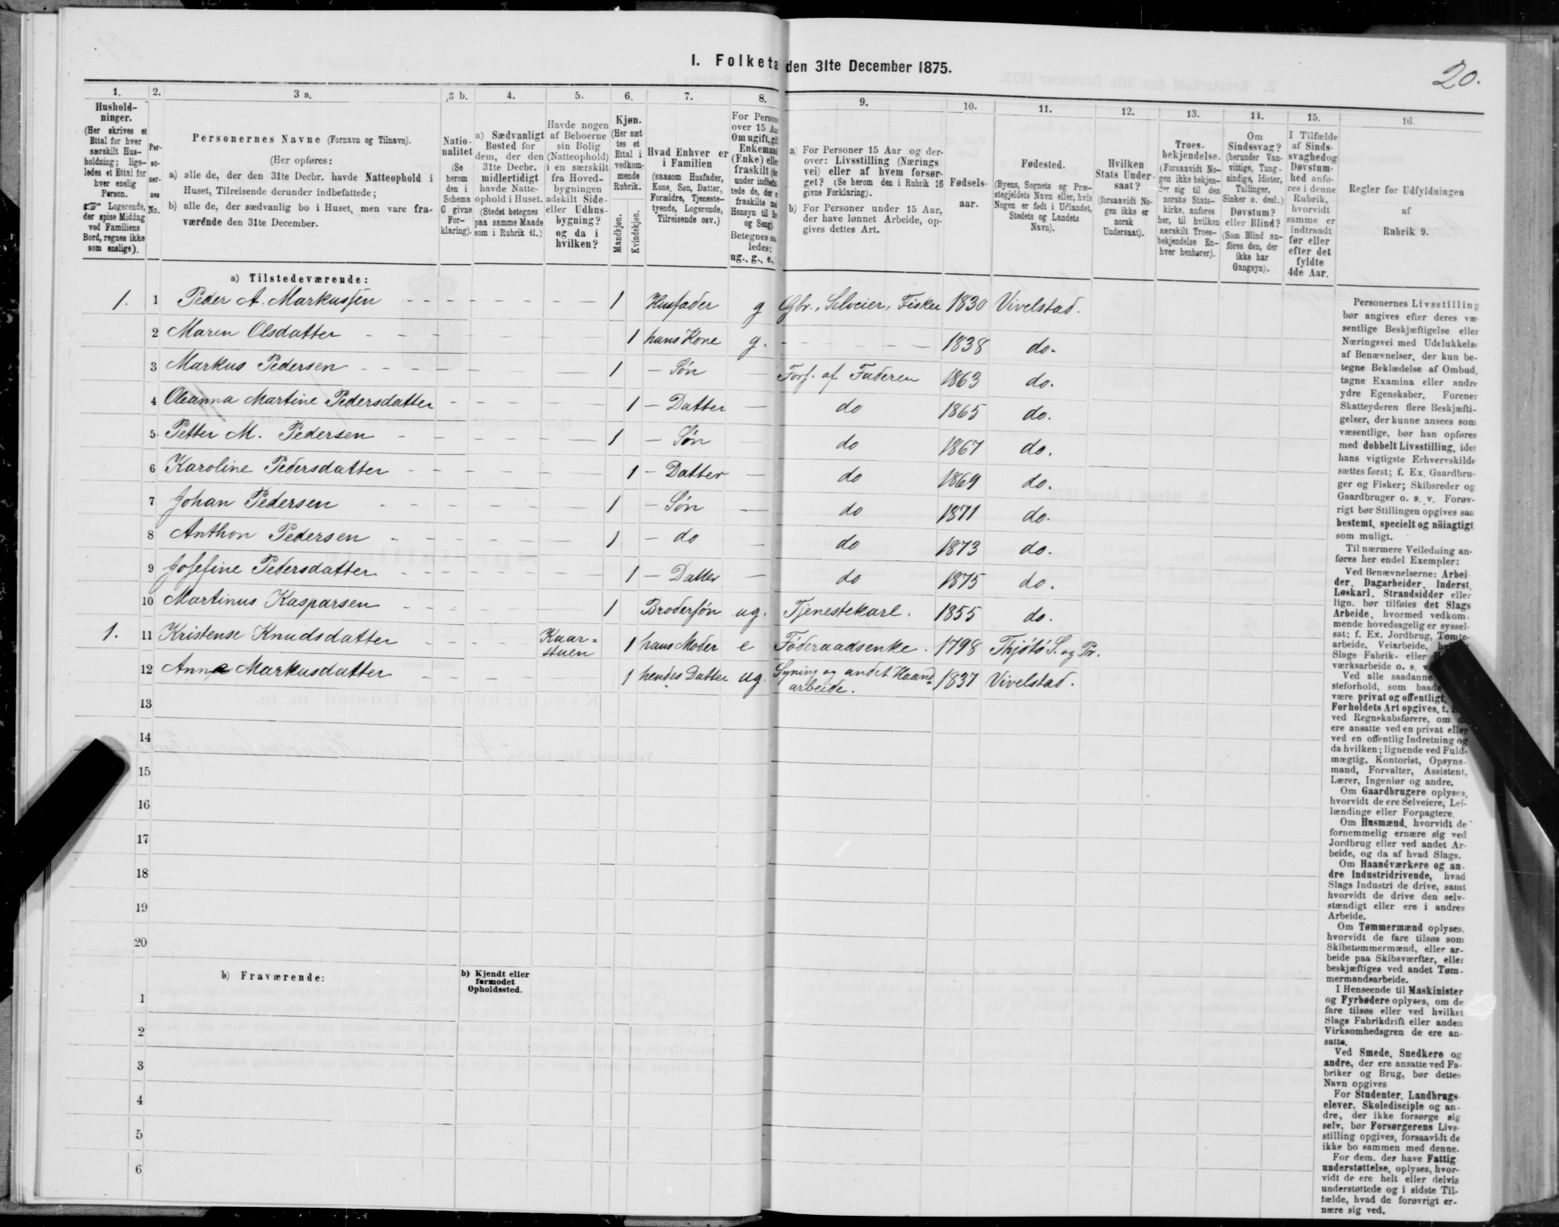 I. Folketa den 31te December 1875.
20.
1.
Hushold-
ninger.
(Her skrives et
Ettal for hver
særskilt Hus-
holdning; lige-
ledes et Ettal for
hver enslig
Person.
☞ Logerende,
der spise Middag
ved Familiens
Bord, regnes ikke
som enslige).
2.
Per-
so-
ner-
nes
No.
3 a.
Personernes Navne (Fornavn og Tilnavn).
(Her opføres:
a) alle de, der den 31te Decbr. havde Natteophold i
Huset, Tilreisende derunder indbefattede;
b) alle de, der sædvanlig bo i Huset, men vare fra-
værende den 31te December.
3 b.
Natio-
nalitet
(Se
herom
den i
Schema
6 givne
For-
klaring).
4.
a) Sædvanligt
Bosted for
dem, der den
31te Decbr.
midlertidigt
havde Natte-
ophold i Huset.
(Stedet betegnes
paa samme Maade
som i Rubrik 11.)
5.
Havde nogen
af Beboerne
sin Bolig
(Natteophold)
i en særskilt
fra Hoved-
bygningen
adskilt Side-
eller Udhus-
bygning?
og da i
hvilken?
6.
Kjøn.
(Her sæt-
tes et
Ettal i
vedkom-
mende
Rubrik.
Mandkjøn.
Kvindekjøn.
7.
Hvad Enhver er
i Familien
(saasom Husfader,
Kone, Søn, Datter,
Forældre, Tjeneste-
tyende, Logerende,
Tilreisende osv.)
8.
For Persone
over 15 Aa
Om ugift, gift
Enkemand
(Enke) elle
fraskilt
ug., g., e.,
9.
a) For Personer 15 Aar og der-
over: Livsstilling (Nærings
vei) eller af hvem forsør-
get? (Se herom den i Rubrik 16
givne Forklaring).
b) For Personer under 15 Aar,
der have lønnet Arbeide, op-
gives dettes Art.
10.
Fødsels-
aar.
11.
Fødested.
(Byens, Sognets og Præ-
stegjeldets Navn eller, hvis
Nogen er født i Udlandet,
Stedets og Landets
Navn).
12.
Hvilken
Stats Under-
saat?
(forsaavidt No-
gen ikke er
norsk
Undersaat).
13.
Troes-
bekjendelse.
(Forsaavidt No-
gen ikke bekjen-
der sig til den
norske Stats-
kirke, anføres
her, til hvilken
særskilt Troes-
bekjendelse En-
hver henhører).
14.
Om
Sindssvag?
(herunder Van-
vittige, Tung-
sindige, Idioter,
Tullinger,
Sinker o. desl.)
Døvstum?
eller Blind?
(Som Blind an-
føres den, der
ikke har
Gangsyn).
15.
I Tilfælde
af Sinds-
svaghed og
Døvstum-
hed anfø-
res i denne
Rubrik,
hvorvidt
samme er
indtraadt
før eller
efter det
fyldte
4de Aar.
16.
Regler for Udfyldningen
af
Rubrik 9.
a) Tilstedeværende:
1. 1 Peder A. Markussen 1 Husfader g Gbr., Selveier, Fisker 1830 Vivelstad.
2 Maren Olsdatter 1 hans Kone g. 1838 do.
3 Markus Pedersen 1 - Søn - Fors. af Faderen 1863 do.
4 Oleanna Martine Pedersdatter 1 - Datter - do 1865 do.
5 Petter M. Pedersen 1 - Søn do 1867 do.
6 Karoline Pedersdatter 1 - Datter - do 1869 do.
7 Johan Pedersen 1 - Søn - do 1871 do.
8 Anthon Pedersen 1 - do - do 1873 do.
9 Josefine Pedersdatter 1 - Datter - do 1875 do.
10 Martinus Kasparsen 1 Brodersøn ug. Tjenestekarl. 1855 do.
1. 11 Kristense Knudsdatter Kaar=
stuen 1 hans Moder e Føderaadsenke. 1798 Thjøtø S. og Pr.
12 Anne Markusdatter 1 hendes Datter ug. Syning og andet Haand=
arbeide. 1837 Vivelstad.
13
14
15
16
17
18
19
20
b) Fraværende:
b) Kjendt eller
formodet
Opholdssted.
1
2
3
4
5
6
Personernes Livsstilling
bør angives efter deres væ-
sentlige Beskjæftigelse eller
Næringsvei med Udelukkelse
af Benævnelser, der kun be-
tegne Beklædelse af Ombud,
tagne Examina eller andre
ydre Egenskaber. Forener
Skatteyderen flere Beskjæfti-
gelser, der kunne ansees som
væsentlige, bør han opføres
med dobbelt Livsstilling, idet
hans vigtigste Erhvervskilde
sættes først; f. Ex. Gaardbru-
ger og Fisker; Skibsreder og
Gaardbruger o. s. v. Forøv-
rigt bør Stillingen opgives saa
bestemt, specielt og nöiagtigt
som muligt.
Til nærmere Veiledning an-
føres her endel Exempler:
Ved Benævnelserne: Arbei-
der, Dagarbeider, Inderst,
Løskarl, Strandsidder eller
lign. bør tilføies det Slags
Arbeide, hvormed vedkom-
mende hovedsagelig er syssel-
sat; f. Ex. Jordbrug, Tomte-
arbeide, Veiarbeide,
Slags Fabrik- eller
værksarbeide o. s.
Ved alle saadanne
steforhold, som baade
være privat og offentligt,
Forholdets Art opgives,
ved Regnskabsførere, om
ere ansatte ved en privat eller
ved en offentlig Indretning og
da hvilken; lignende ved Fuld-
mægtig, Kontorist, Opsyns-
mand, Forvalter, Assistent,
Lærer, Ingeniør og andre.
Om Gaardbrugere oplyses,
hvorvidt de ere Selveiere, Lei-
lændinge eller Forpagtere.
Om Husmænd, hvorvidt de
fornemmelig ernære sig ved
Jordbrug eller ved andet Ar-
beide, og da af hvad Slags.
Om Haandværkere og an-
dre Industridrivende, hvad
Slags Industri de drive, samt
hvorvidt de drive den selv-
stændigt eller ere i andres
Arbeide.
Om Tømmermænd oplyses,
hvorvidt de fare tilsøs som
Skibstømmermænd, eller ar-
beide paa Skibsværfter, eller
beskjæftiges ved andet Tøm-
mermandsarbeide.
I Henseende til Maskinister
og Fyrbødere oplyses, om de
fare tilsøs eller ved hvilket
Slags Fabrikdrift eller anden
Virksomhedsgren de ere an-
satte.
Ved Smede, Snedkere og
andre, der ere ansatte ved Fa-
briker og Brug, bør dettes
Navn opgives
For Studenter, Landbrugs-
elever, Skoledisciple og an-
dre, der ikke forsørge sig
selv, bør Forsørgerens Livs-
stilling opgives, forsaavidt de
ikke bo sammen med denne.
For dem, der have Fattig
understøttelse, oplyses, hvor-
vidt de ere helt eller delvis
understøttede og i sidste Til-
fælde, hvad de forøvrigt er-
nære sig ved.